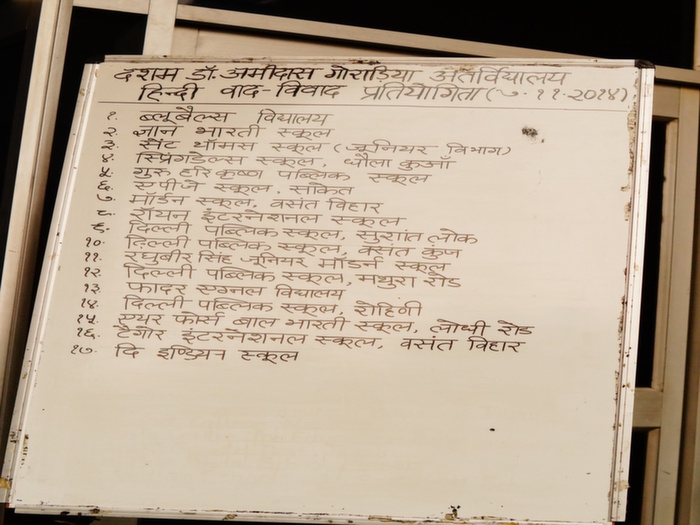 दशम डॉ. अमीदास गोराड़िया अंतर्विद्यालय
हिन्दी वाद-विवाद प्रतियोगिता (७.११.२०१४)
१. ब्लूबैल्स विद्यालय
२. ज्ञान भारती स्कूल
३. सैंट थॉमस स्कूल (जूनियर विभाग)
४. स्प्रिंगडेल्स स्कूल, धौला कुआँ
५. गुरु हरिकृष्ण पब्लिक स्कूल
६. एपीजे स्कूल, साकेत
७. मॉर्डन स्कूल, वसंत विहार
८. रॉयन इंटरनेशनल स्कूल
९. दिल्ली पब्लिक स्कूल, सुशांत लोक
१०. दिल्ली पब्लिक स्कूल, वसंत कुंज
११. रघुबीर सिंह जूनियर मॉडर्न स्कूल
१२. दिल्ली पब्लिक स्कूल, मथुरा रोड
१३. फादर एग्नल विद्यालय
१४. दिल्ली पब्लिक स्कूल, रोहिणी
१५. एयर फोर्स बाल भारती स्कूल, लोधी रोड
१६. टैगोर इंटरनेशनल स्कूल, वसंत विहार
१७. दि इण्डियन स्कूल